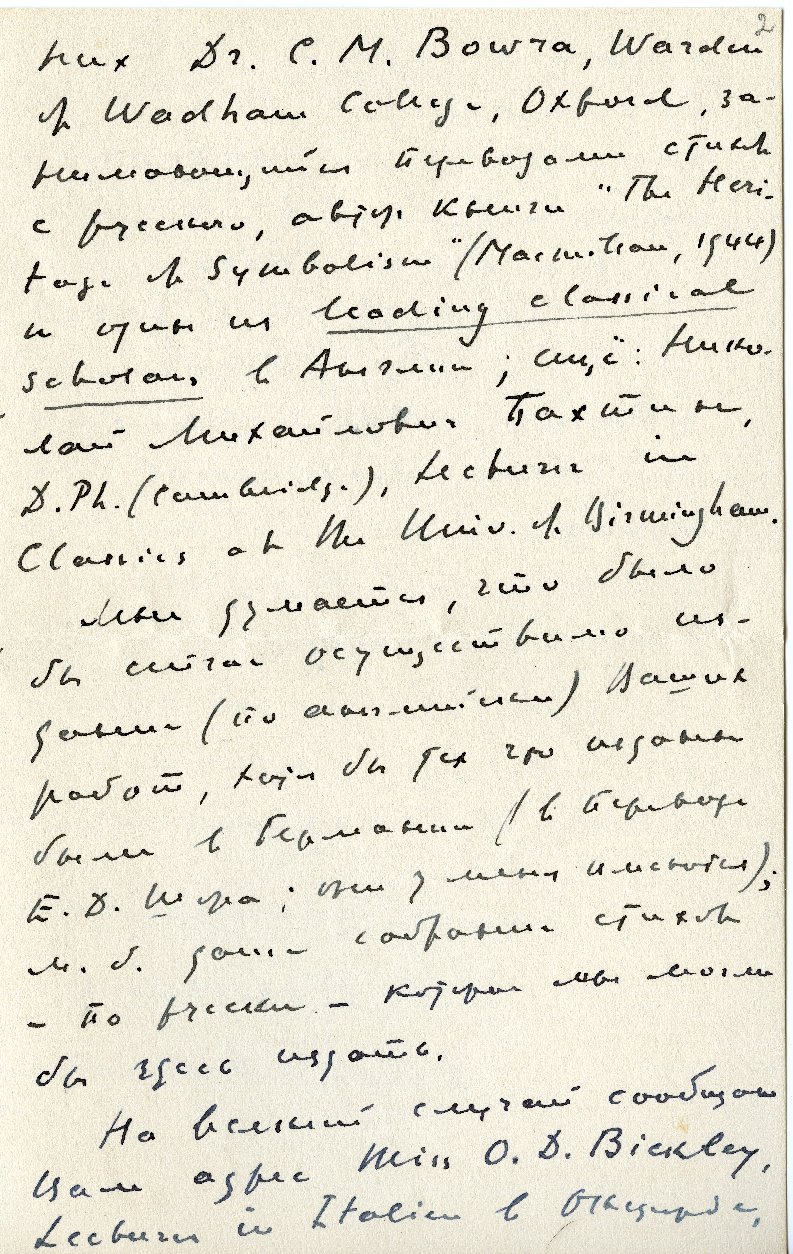 2
них Dr. C. M. Bowra, Warden
of Wadham College, Oxford, за-
нимающийся переводами стихов
с русского, автор книги "The Heri-
tage of Symbolism" (Macmillan, 1944)
и один из leading classical
scholars в Англии; ещё: Нико-
лай Михайлович Бахтин,
D. Ph. (Cambridge), Lecturer in
Classics at the Univ. of Birmingham.
Мне думается, что было
бы сейчас осуществимо из-
дание (по английски) Ваших
работ, хотя бы тех что изданы
были в Германии (в переводе
Е. Д. Шора; они у меня имеются);
м. б. даже собрание стихов
– по русски – которые мы могли
бы здесь издать.
На всякий случай сообщаю
Вам адрес Miss O. D. Bickley,
Lecturer in Italian в Оксфорде,